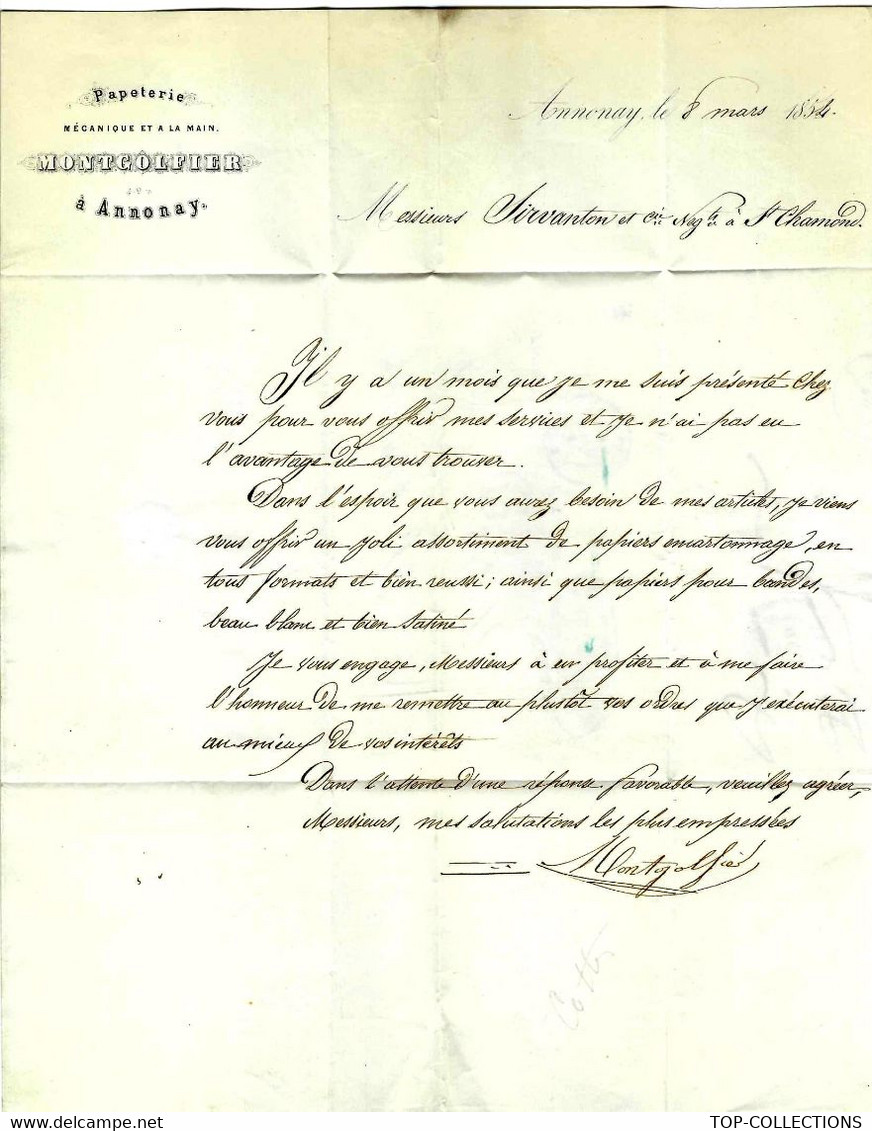 Papeterie
MÉCANIQUE ET A LA MAIN.
MONTGOLFIER
à Annonay.
Annonay, le 8 mars 1854.
Messieurs Sirvanton et Cie Negts à St Chamond.
Il y a un mois que je me suis présenté chez
vous pour vous offrir mes services et je n'ai pas eu
l'avantage de vous trouver.
Dans l'espoir que vous aurez besoin de mes articles, je viens
vous offrir un joli assortiment de papiers encartonnage, en
tous formats et bien reussi; ainsi que papiers pour bandes,
beau blanc et bien satiné
Je vous engage, Messieurs à en profiter et à me faire
l'honneur de me remettre au plustôt vos ordres que j'exécuterai
au mieux de vos intérêts
Dans l'attente d'une réponse favorable, veuillez agréer,
Messieurs, mes salutations les plus empressées
Montgolfier
TOP-COLLECTIONS